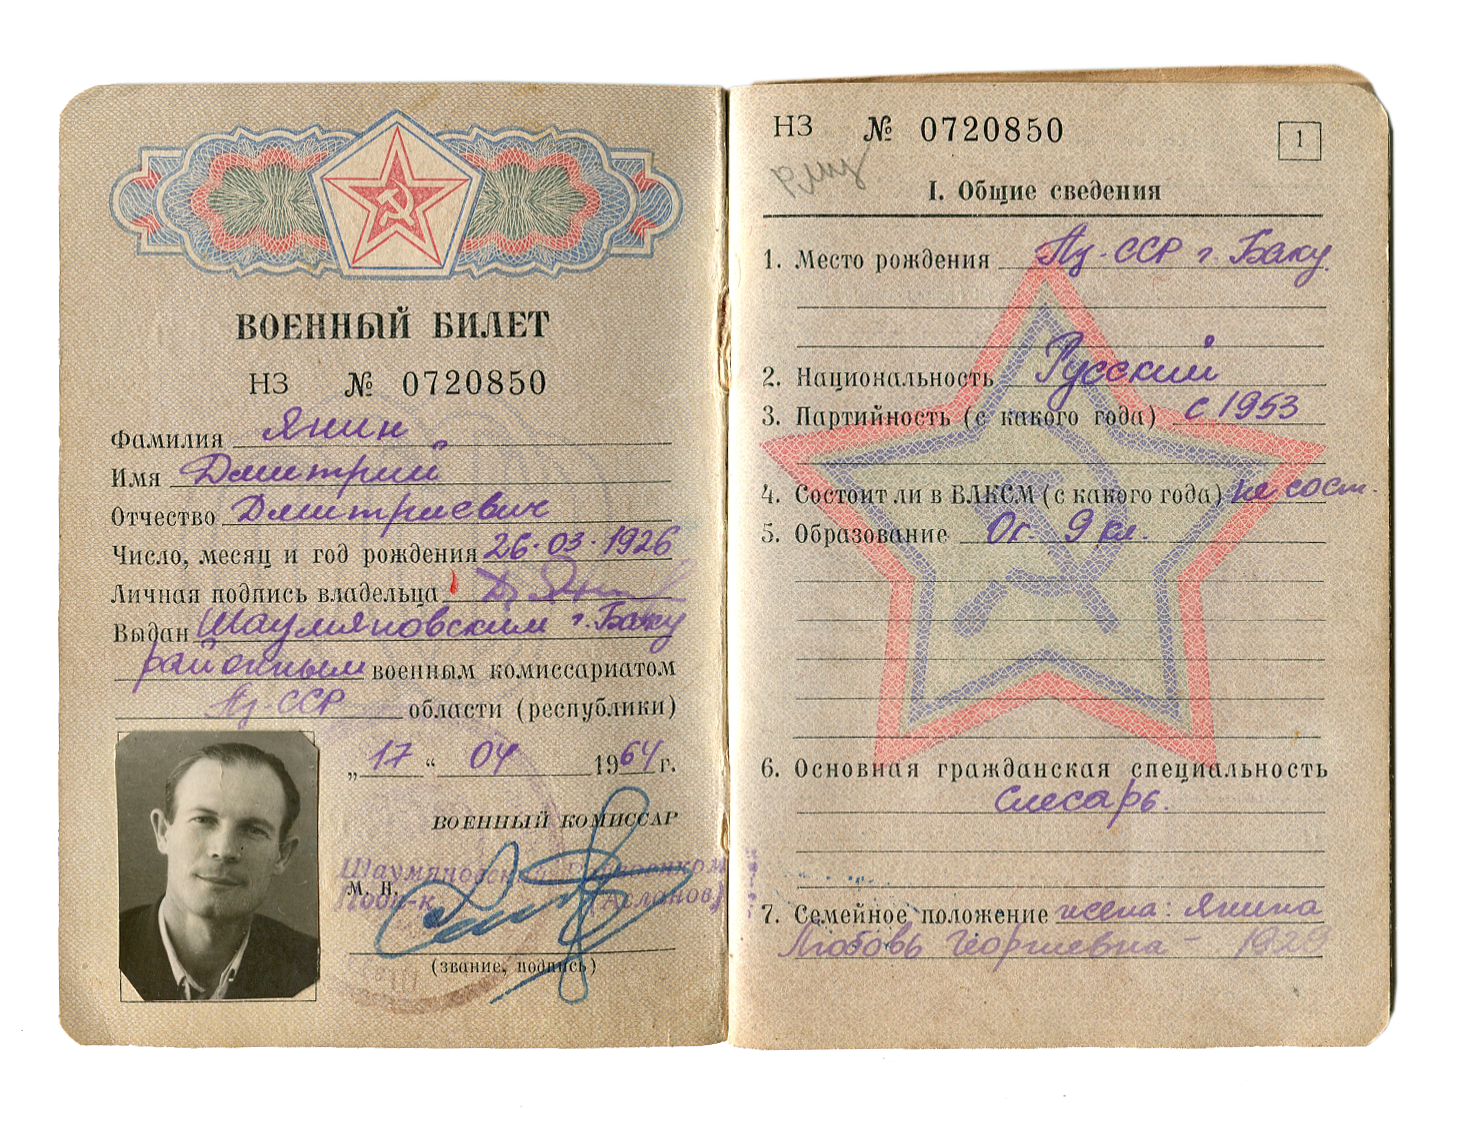 ВОЕННЫЙ БИЛЕТ
НЗ № 0720850
Фамилия Янин
Имя Дмитрий
Отчество Дмитриевич
Число, месяц и год рождения 26.03.1926
Личная подпись владельца Д. Янин
Выдан Шаумяновским г. Баку
районным военным комиссариатом
Аз-ССР области (республики)
„17“ 04 1964 г.
ВОЕННЫЙ КОМИССАР
Шаумяновский Райвоенком
М. П.
Подп-к (Асланов)
(звание, подпись)
НЗ № 0720850
1
I. Общие сведения
1. Место рождения Аз-ССР г. Баку.
2. Национальность Русский
3. Партийность (с какого года) с 1953
4. Состоит ли в ВЛКСМ (с какого года) не сост.
5. Образование Ог. 9 кл.
6. Основная гражданская специальность
Слесарь.
7. Семейное положение жена: Янина
Любовь Георгиевна -